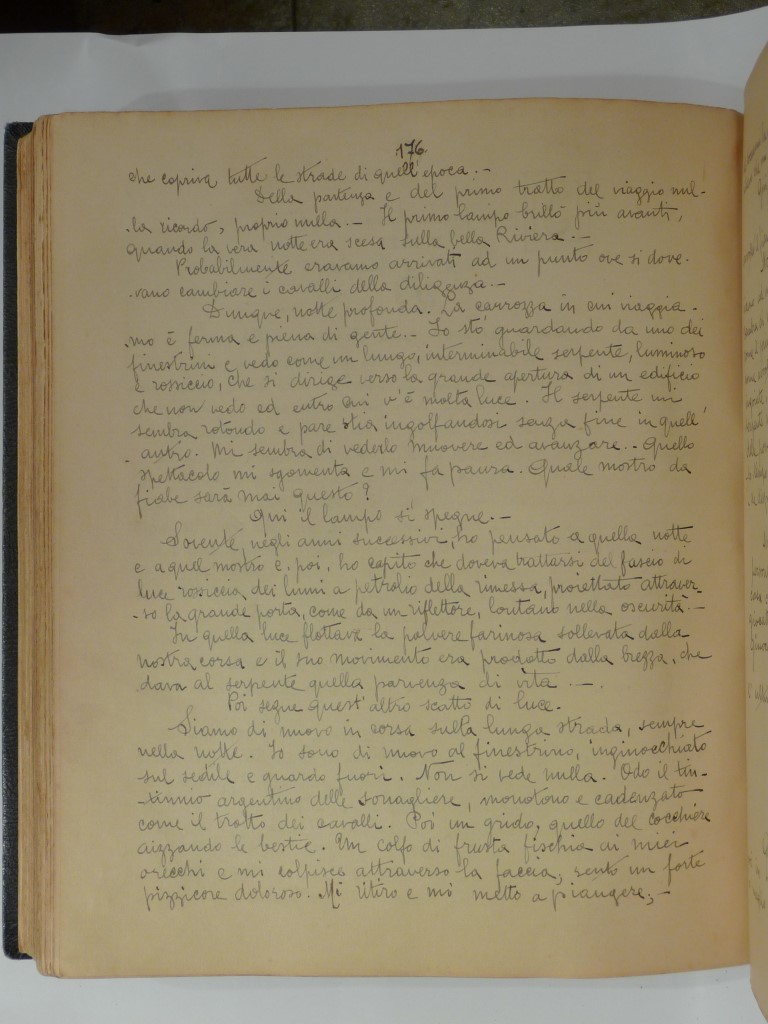 176.
che copriva tutte le strade di quell'epoca. -
Della partenza e del primo tratto del viaggio nul-
-la ricordo, proprio nulla. - Il primo lampo brillò più avanti,
quando la vera notte era scesa sulla bella Riviera. -
Probabilmente eravamo arrivati ad un punto ove si dove-
-vano cambiare i cavalli della diligenza. -
Dunque, notte profonda. La carrozza in cui viaggia-
-mo è ferma e piena di gente. - Io sto guardando da uno dei
finestrini e vedo come un lungo, interminabile serpente, luminoso
e rossiccio, che si dirige verso la grande apertura di un edificio
che non vedo ed entro cui v'è molta luce. Il serpente mi
sembra rotondo e pare stia ingolfandosi senza fine in quell'
antro. Mi sembra di vederlo muovere ed avanzare. . Quello
spettacolo mi sgomenta e mi fa paura. Quale mostro da
fiabe sarà mai questo?
Qui il lampo si spegne. -
Sovente, negli anni successivi, ho pensato a quella notte
e a quel mostro e, poi, ho capito che doveva trattarsi del fascio di
luce rossiccia dei lumi a petrolio della rimessa, proiettato attraver-
-so la grande porta, come da un riflettore, lontano nella oscurità. -
In quella luce flottava la polvere farinosa sollevata dalla
nostra corsa e il suo movimento era prodotto dalla brezza, che
dava al serpente quella parvenza di vita. -
Poi segue quest'altro scatto di luce.
Siamo di nuovo in corsa sulla lunga strada, sempre
nella notte. Io sono di nuovo al finestrino, inginocchiato
sul sedile e guardo fuori. Non si vede nulla. Odo il tin-
-tinnio argentino delle sonagliere, monotono e cadenzato
come il trotto dei cavalli. Poi un grido, quello del cocchiere
aizzando le bestie. Un colpo di frusta fischia ai miei
orecchi e mi colpisce attraverso la faccia; sento un forte
pizzicore doloroso. Mi ritiro e mi metto a piangere; -